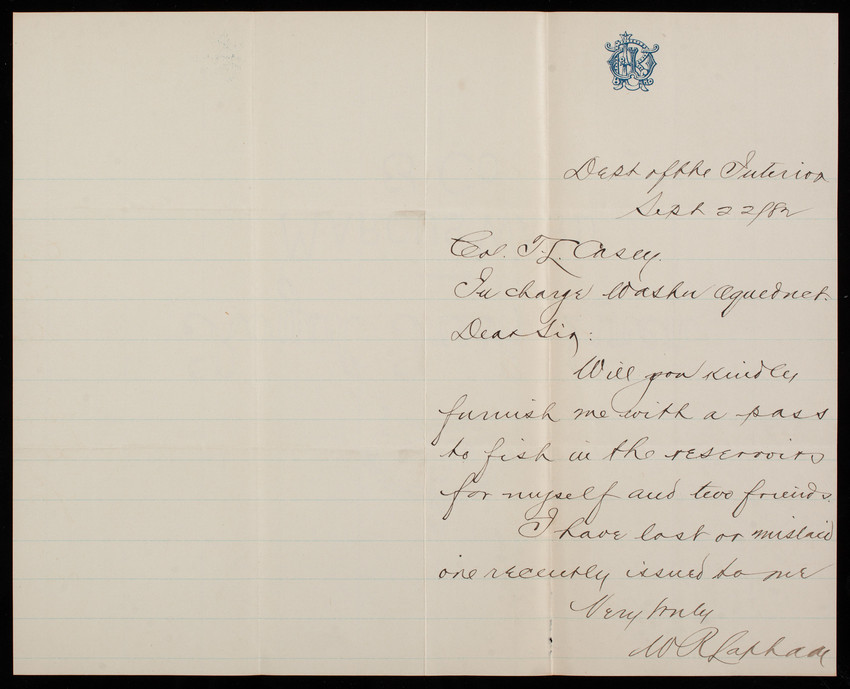 Dept of the Interior
Sept 22/82
Col. T. L. Casey.
In charge Washn Aqueduct.
Dear Sir:
Will you kindly
furnish me with a pass
to fish in the reservoirs
for myself and two friends.
I have lost or mislaid
one recently issued to me
Very truly
W R Lapham